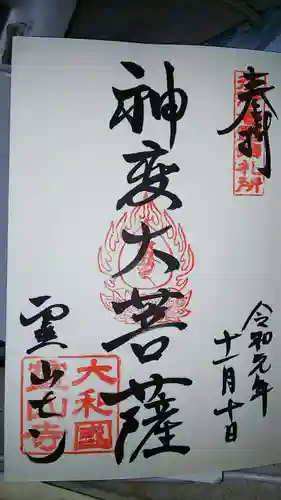 奉拝
令和元年
十一月十日
神変大菩薩
霊山寺
大和國
霊山寺